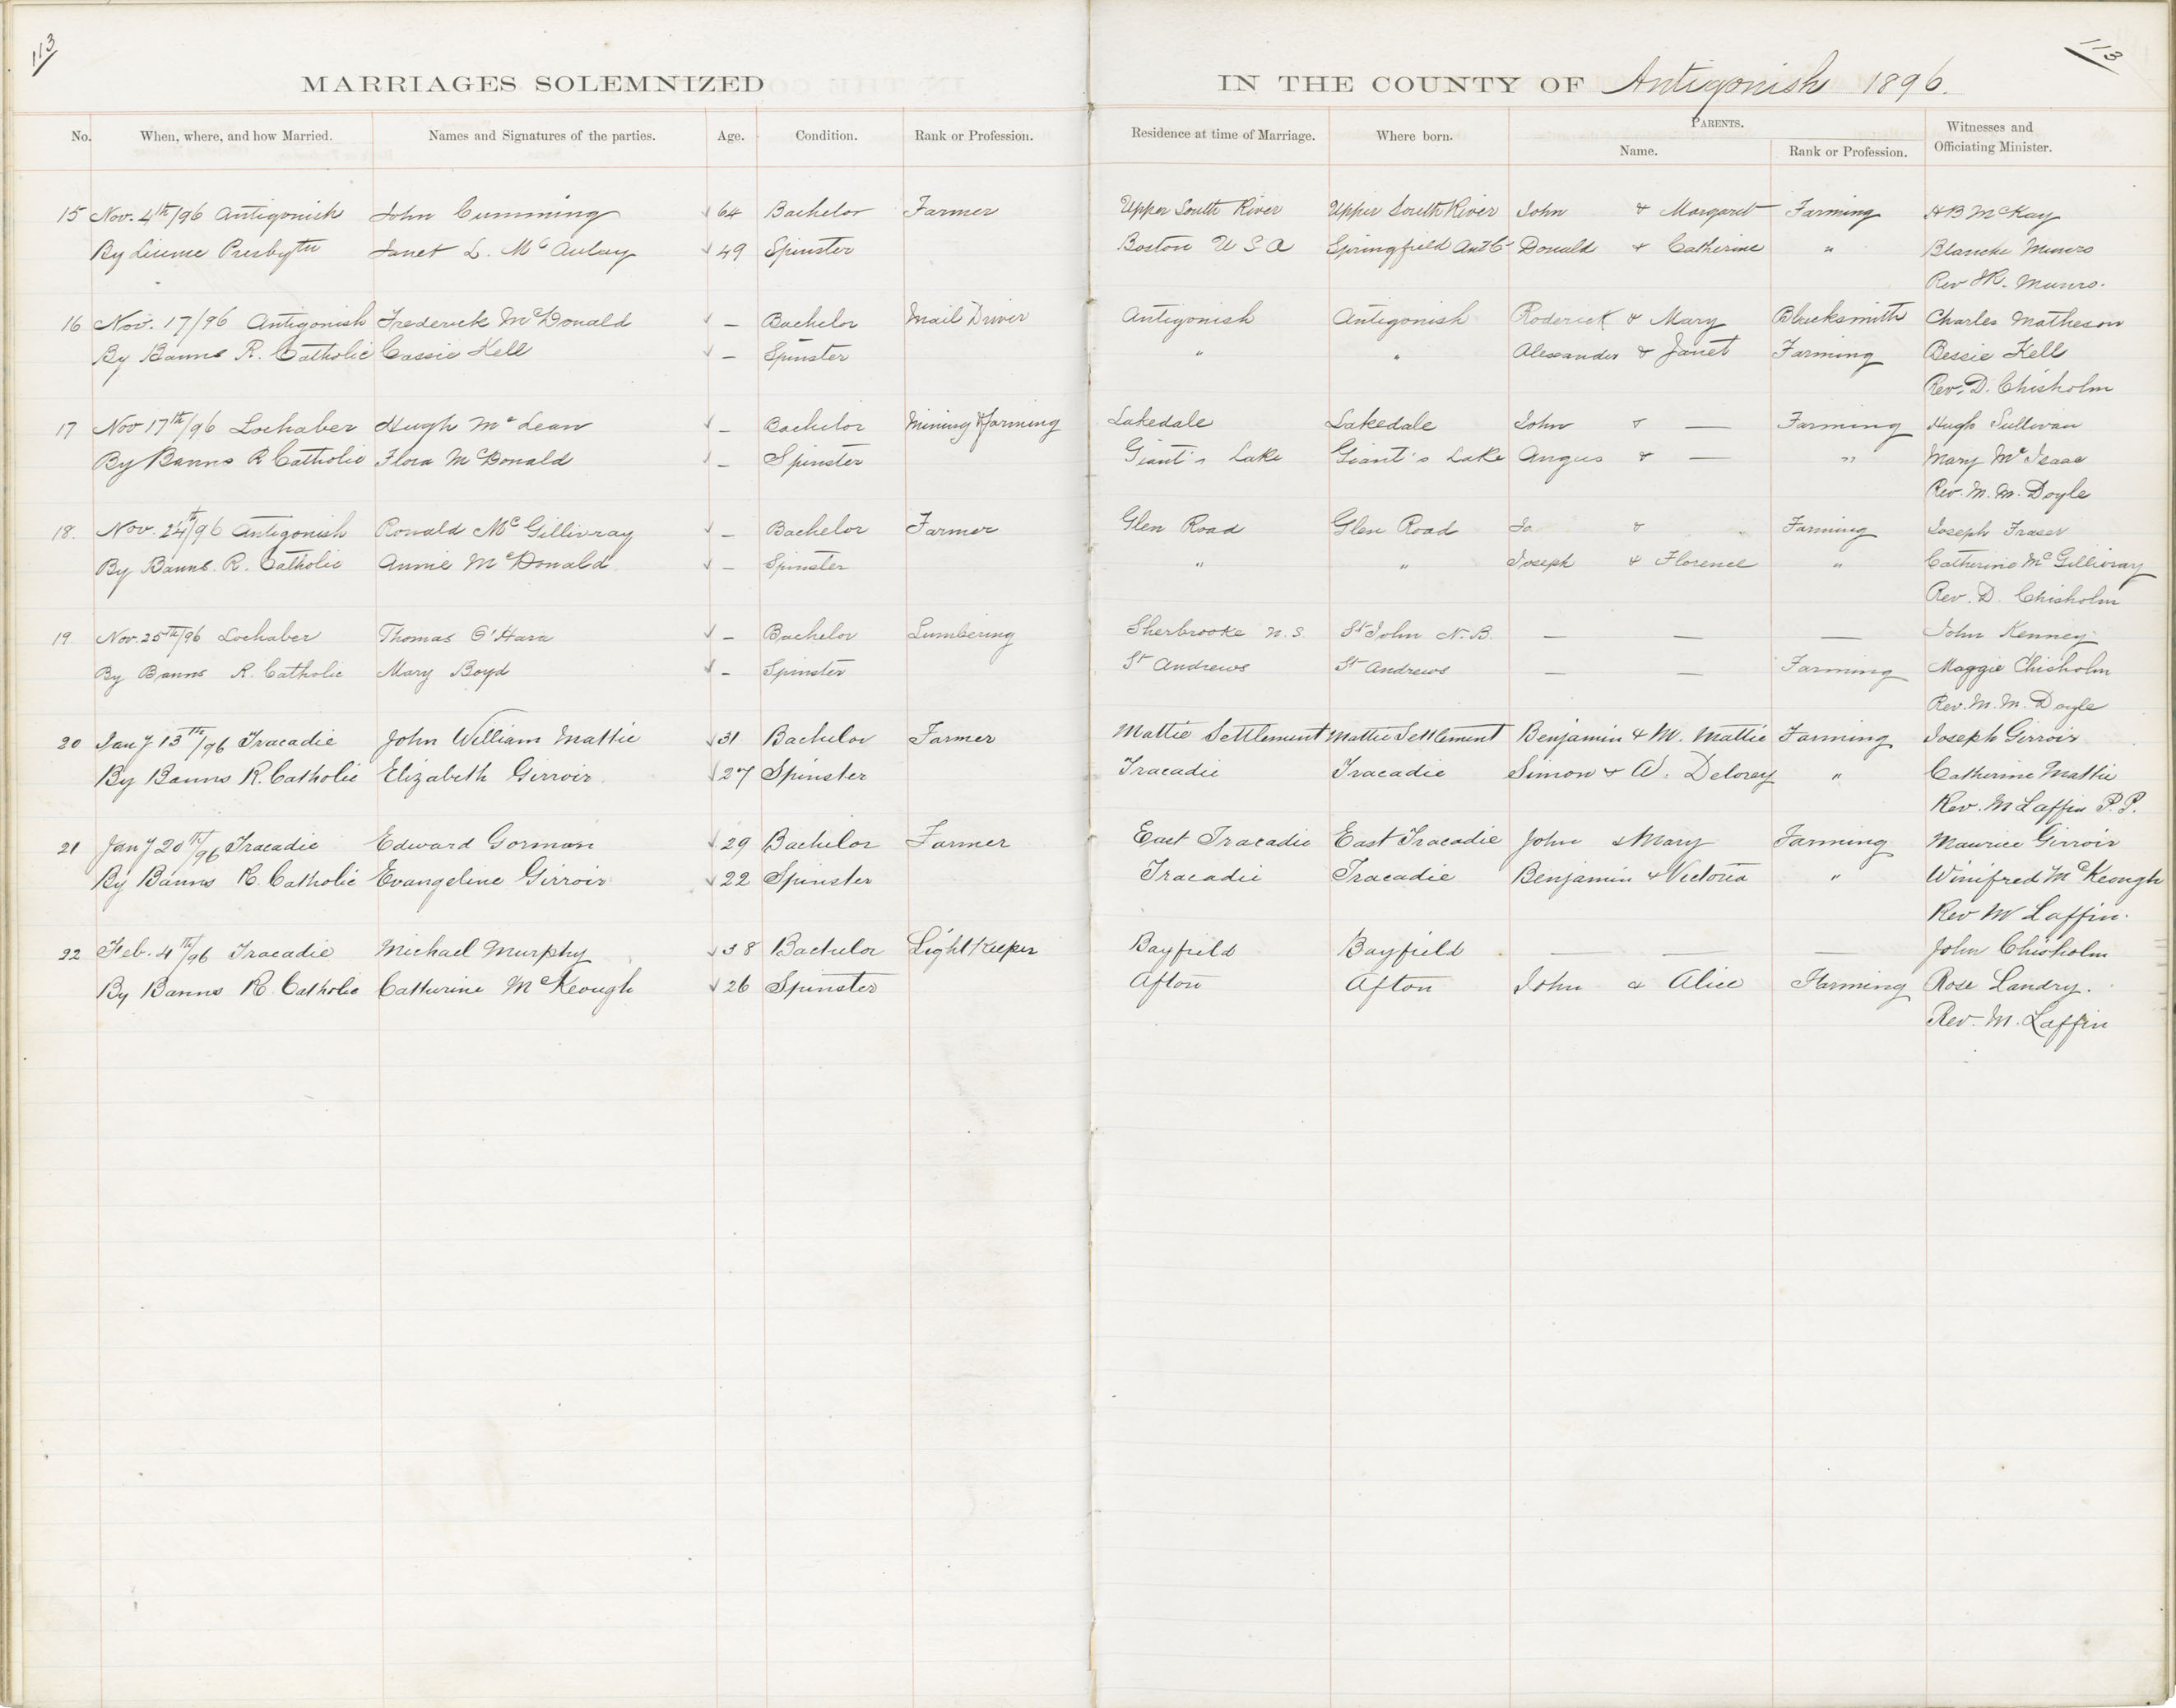 113
113
MARRIAGES SOLEMNIZED IN THE COUNTY OF Antigonish 1896.
No. When, where, and how Married. Names and Signatures of the parties. Age. Condition. Rank or Profession. Residence at time of Marriage. Where born. PARENTS. Name. Rank or Profession. Witnesses and Officiating Minister.
15 Nov. 4th/96 Antigonish John Cumming √ 64 Bachelor Farmer Upper South River Upper South River John & Margaret Farming H B McKay
By License Presbytn Janet L. McAulay √ 49 Spinster Boston U S A Springfield Ant Co Donald & Catherine " Blanche Munro
Rev J.R. Munro.
16 Nov. 17/96 Antigonish Frederick McDonald √ – Bachelor Mail Driver Antigonish Antigonish Roderick & Mary Blacksmith Charles Matheson
By Banns R. Catholic Cassie Kell √ – Spinster " " Alexander & Janet Farming Bessie Kell
Rev. D. Chisholm
17 Nov 17th/96 Lochaber Hugh McLean √ – Bachelor Mining & farming Lakedale Lakedale John & — Farming Hugh Sullivan
By Banns R Catholic Flora McDonald √ – Spinster Giant's Lake Giant's Lake Angus & — " Mary McIsaac
Rev. M. M. Doyle
18. Nov. 24th/96 Antigonish Ronald McGillivray √ – Bachelor Farmer Glen Road Glen Road Jo & Farming Joseph Fraser
By Banns. R. Catholic Annie McDonald √ – Spinster " " Joseph & Florence " Catherine McGillivray
Rev. D. Chisholm
19. Nov. 25th/96 Lochaber Thomas O'Hara √ – Bachelor Lumbering Sherbrooke N.S. St John N.B. — — — John Kenney
By Banns R. Catholic Mary Boyd √ – Spinster St Andrews St Andrews — — Farming Maggie Chisholm
Rev. M. M. Doyle
20 Jany 13th/96 Tracadie John William Mattie √ 31 Bachelor Farmer Mattie Settlement Mattie Settlement Benjamin & M. Mattie Farming Joseph Girroir
By Banns R. Catholic Elizabeth Girroir √ 27 Spinster Tracadie Tracadie Simon & W. Delorey " Catherine Mattie
Rev. M Laffin P.P.
21 Jany 20th/96 Tracadie Edward Gorman √ 29 Bachelor Farmer East Tracadie East Tracadie John & Mary Farming Maurice Girroir
By Banns R. Catholic Evangeline Girroir √ 22 Spinster Tracadie Tracadie Benjamin & Victoria " Winifred McKeough
Rev M Laffin.
22 Feb. 4th/96 Tracadie Michael Murphy √ 38 Bachelor Light Keeper Bayfield Bayfield — — — John Chisholm
By Banns R. Catholic Catherine McKeough √ 26 Spinster Afton Afton John & Alice Farming Rose Landry.
Rev. M. Laffin